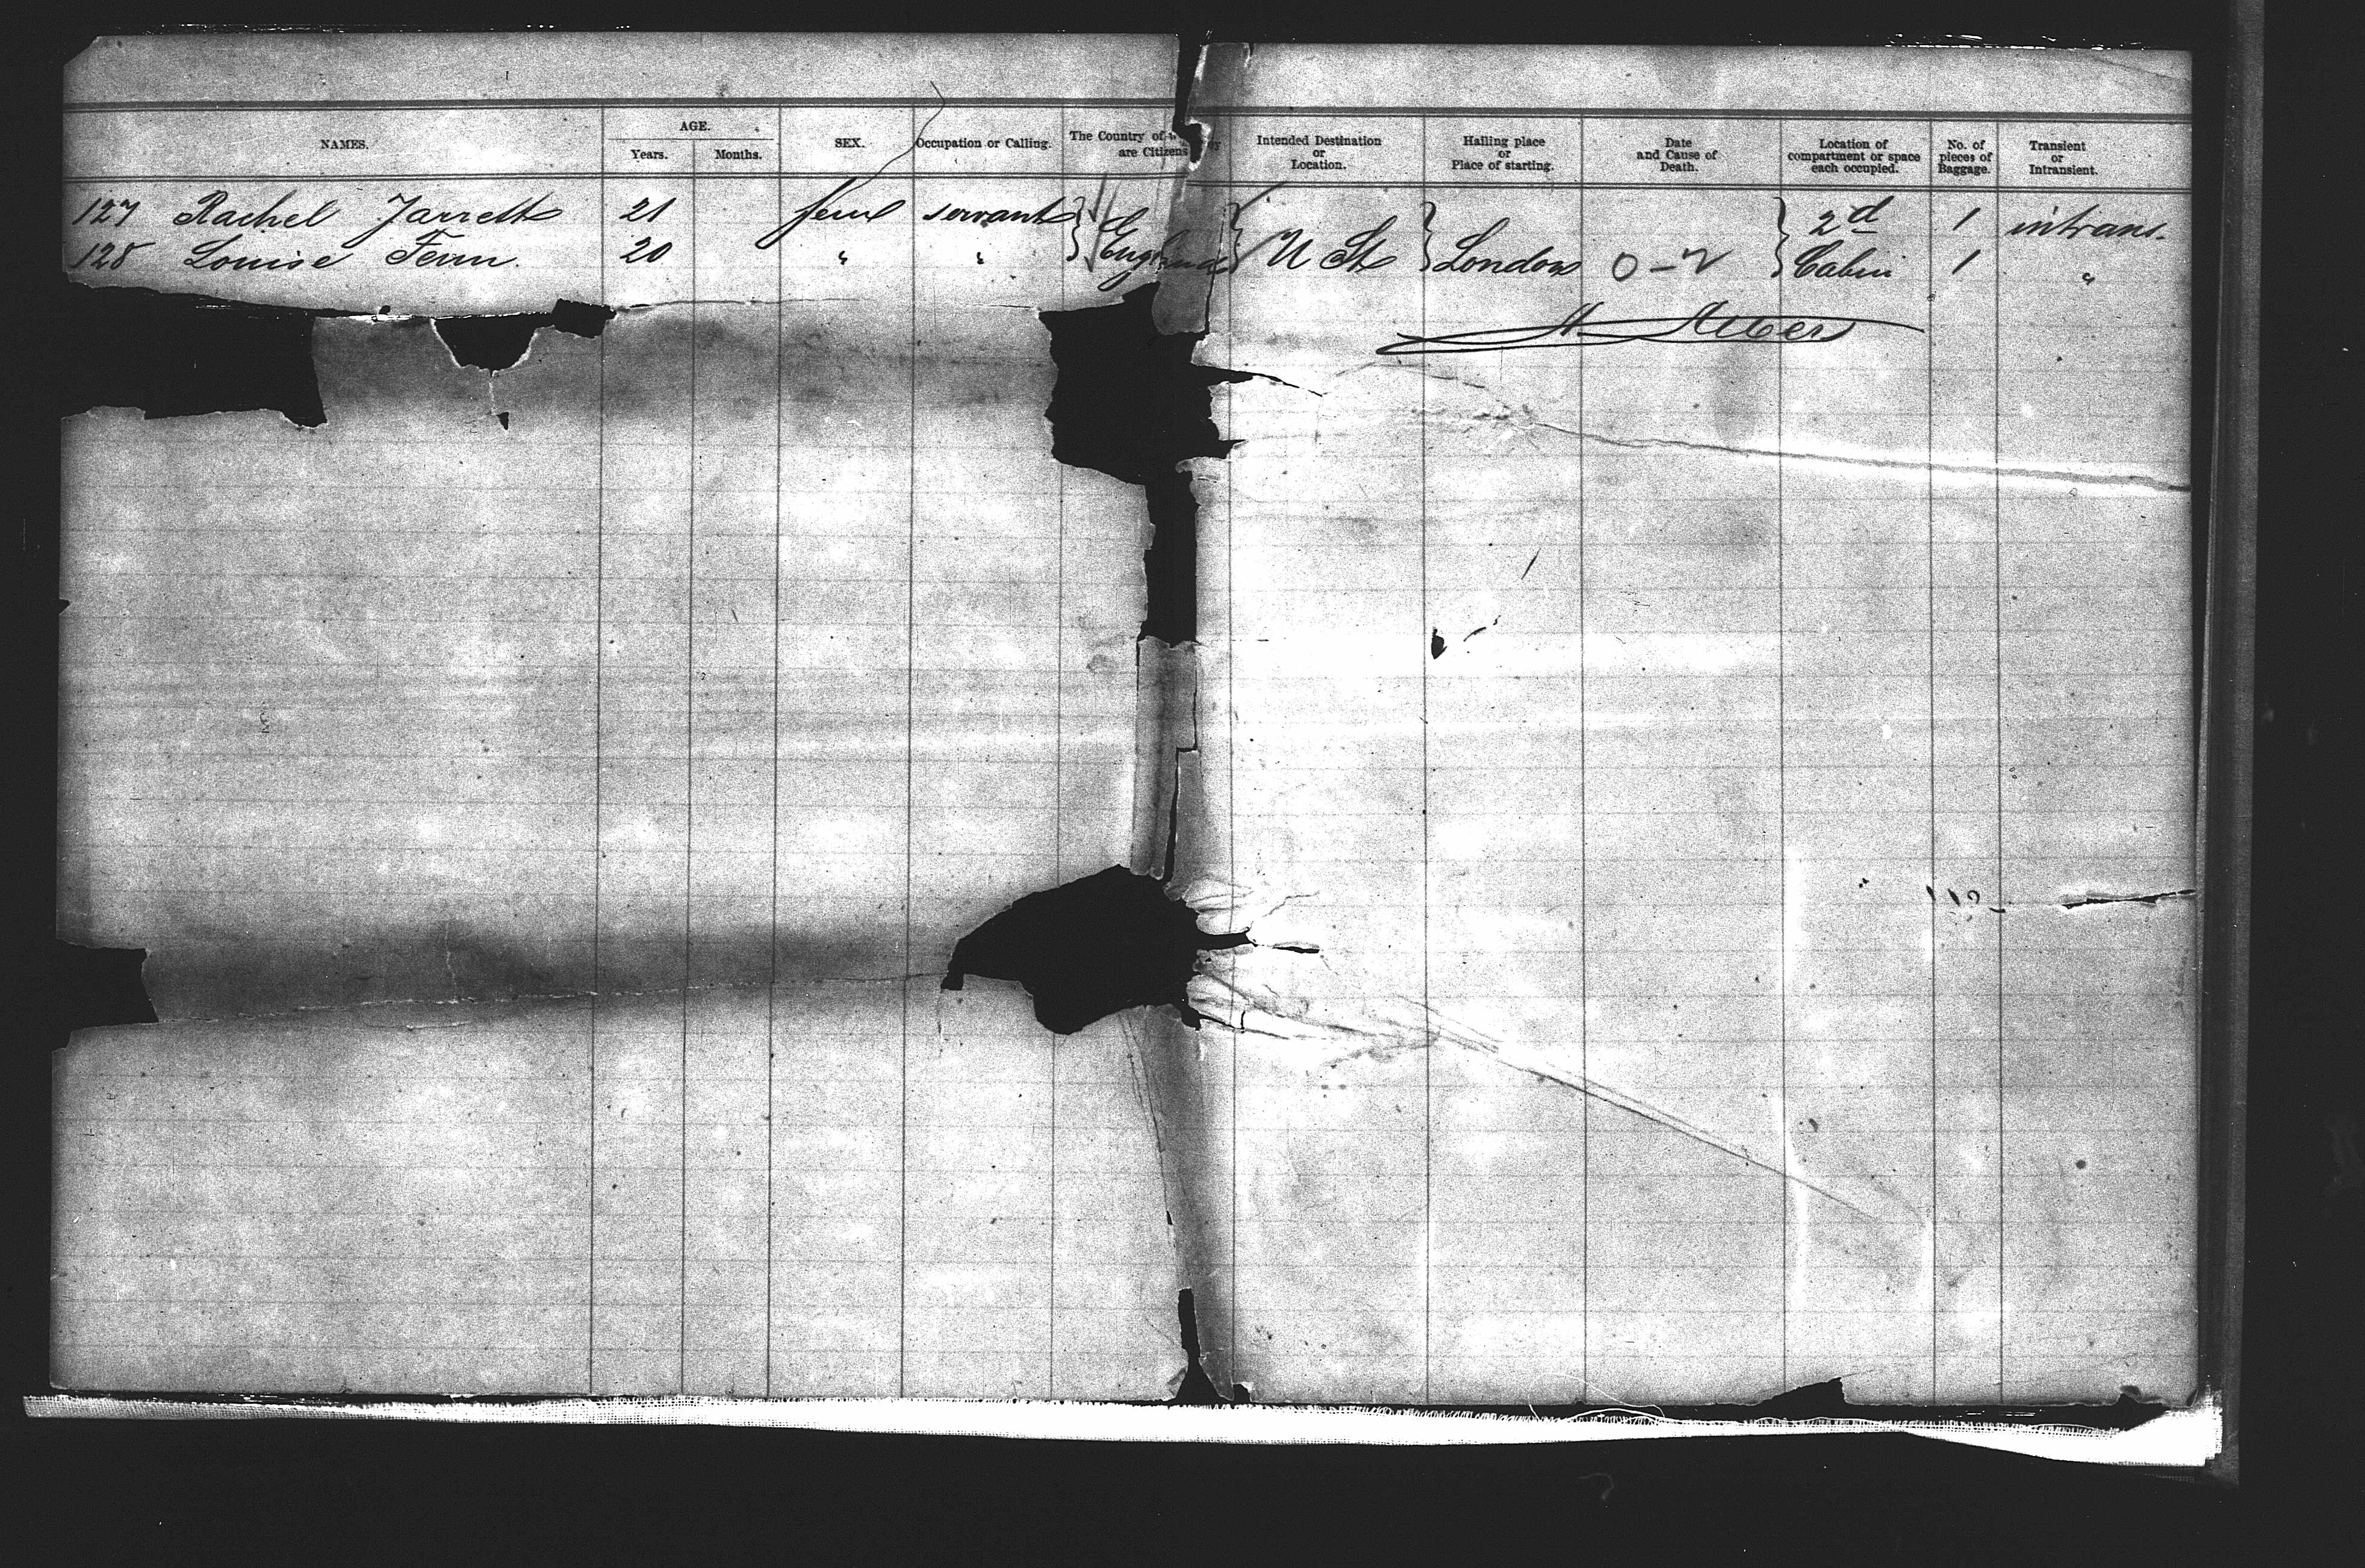 NAMES. AGE. SEX. Occupation or Calling. The Country of are Citizens Intended Destination or Location. Hailing place or Place of starting. Date and Cause of Death. Location of compartment or space each occupied. No. of pieces of Baggage. Transient or Intransient.
Years. Months.
127 Rachel Jarrett 21 fem servant } England } U St } London 0-2 } 2d Cabin 1 intrans.
128 Louise Fenn. 20 " " 1 "